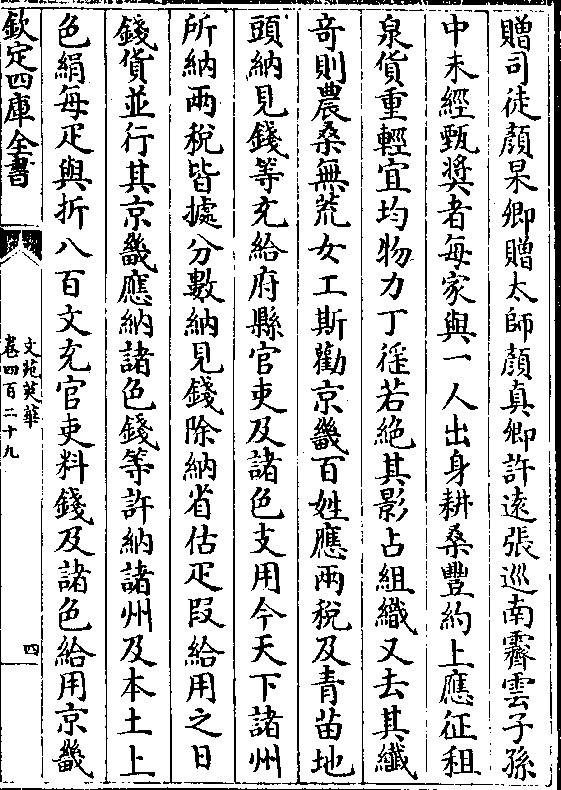 贈司徒顔杲卿贈太師顔真卿許逺張巡南霽雲子孫
中未經甄奬者每家與一人出身耕桑豐約上應征租
泉貨重輕宜均物力丁徭若絶其影占組織又去其纎
竒則農桑無荒女工斯勸京畿百姓應兩税及青苖地
頭納見錢等充給府縣官吏及諸色支用今天下諸州
所納兩税皆據分數納見錢除納省估疋叚給用之日
錢貨並行其京畿應納諸色錢等許納諸州及本土上
色絹每疋與折八百文充官吏料錢及諸色給用京畿
欽定四庫全書
文苑英華
卷四百二十九
四